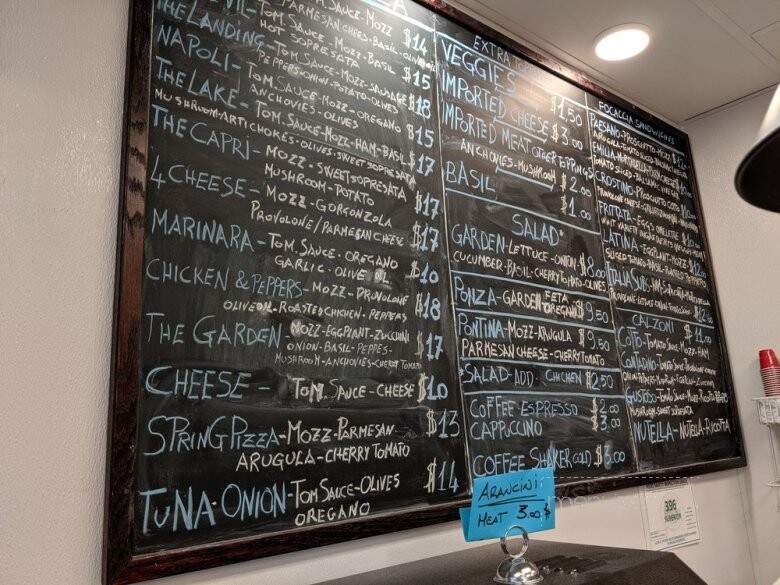 TOM. SAUCE-MOZZ
PARMESAN CHEES-BASIL-OLIVE OIL $14
THE LANDING-TOM. SAUCE-MOZZ-BASIL
HOT SOPRESATA $15
NAPOLI-TOM. SAUCE-MOZZ-SAUSAGE
PEPPERS-ONION-POTATO-OLIVES $18
ANCHOVIES-OLIVES
THE LAKE-TOM. SAUCE-MOZZ-OREGANO $15
TOM. SAUCE-MOZZ-HAM-BASIL
MUSHROOM-ARTICHOKES-OLIVES-SWEET SOPRESATA $17
THE CAPRI-MOZZ-SWEET SOPRESATA
MUSHROOM-POTATO $17
4 CHEESE-MOZZ-GORGONZOLA
PROVOLONE/PARMESAN CHEESE $17
MARINARA-TOM. SAUCE-OREGANO
GARLIC-OLIVE OIL $10
CHICKEN & PEPPERS-MOZZ-PROVOLONE
OLIVE OIL-ROASTED CHICKEN-PEPPERS $18
THE GARDEN-MOZZ-EGGPLANT-ZUCCHINI
ONION-BASIL-PEPPES- $17
MUSHROOM-ANCHOVIES-CHERRY TOMATO
CHEESE-TOM. SAUCE-CHEESE $10
SPRING PIZZA-MOZZ-PARMESAN- $13
ARUGULA-CHERRY TOMATO
TUNA-ONION-TOM SAUCE-OLIVES $14
OREGANO
EXTRA
VEGGIES $1.50
IMPORTED CHEESE $3.00
IMPORTED MEAT OTHER TOPPINGS
ANCHOVIES-MUSHROOM $2.00
BASIL $1.00
SALAD
GARDEN-LETTUCE-ONION $8.00
CUCUMBER-BASIL-CHERRY TOMATO-OLIVES
PONZA-GARDEN-FETA
OREGANO $9.50
PONTINA-MOZZ-ARUGULA $9.50
PARMESAN CHEESE-CHERRY TOMATO
SALAD-ADD-CHICKEN $2.50
COFFEE ESPRESSO $2.00
CAPPUCCINO $3.00
COFFEE SHAKER COLD $3.00
FOCACCIA SANDWICHES
PAESANO-PROSCIUTTO-MOZZ
ARUGULA-TOMATO SLICED
EMILIA-MORTADELLA
TOMATO SLICED-BALSAMIC VINEGAR
CROSTINO-PROSCIUTTO COTTO
FRITTATA-EGG'S OMELETTE
LATINA-EGGPLANT-MOZZ
SLICED TOMATO-BASIL-ROASTED PEPPERS
CALZONI $11.00
COTTO-TOMATO SAUCE-MOZZ-HAM
CONTADINO-TOMATO SAUCE
GUSTOSO-TOMATO SAUCE-MOZZ-RICOTTA
MUSHROOM-SWEET SOPRESATA
NUTELLA-NUTELLA-RICOTTA
ARANCINI
MEAT 3.00 $
396